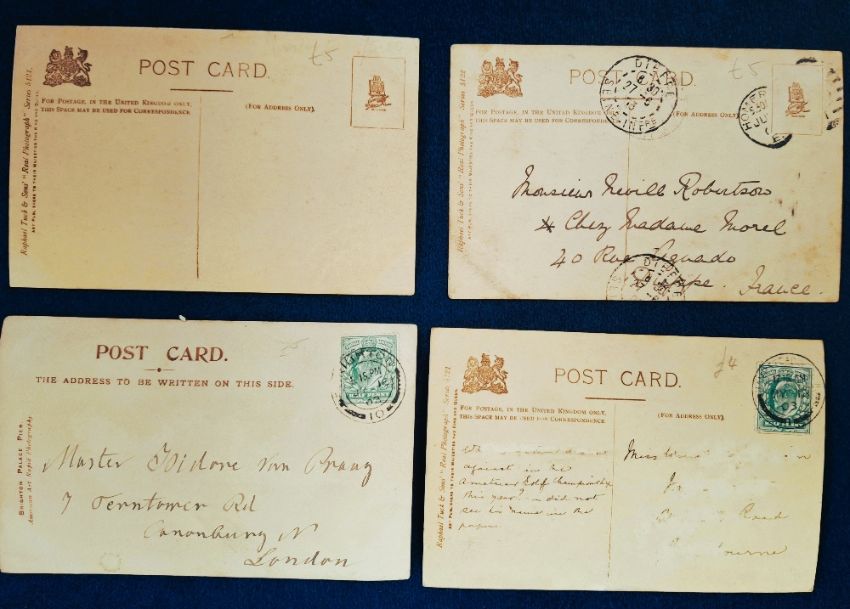 £5
POST CARD.
FOR POSTAGE, IN THE UNITED KINGDOM ONLY,
THIS SPACE MAY BE USED FOR CORRESPONDENCE.
(FOR ADDRESS ONLY.)
Raphael Tuck & Sons' "Real Photograph" Series
ART PUBLISHERS TO THEIR MAJESTIES THE KING AND QUEEN.
£5
POST CARD.
FOR POSTAGE, IN THE UNITED KINGDOM ONLY,
THIS SPACE MAY BE USED FOR CORRESPONDENCE.
(FOR ADDRESS ONLY)
Raphael Tuck & Sons' "Real Photograph" Series
ART PUBLISHERS TO THEIR MAJESTIES THE KING AND QUEEN.
DIEPPE
SEINE INFRE
Monsieur Nevill Robertson
Chez Madame Morel
40 Rue
France.
DIEPPE
POST CARD.
THE ADDRESS TO BE WRITTEN ON THIS SIDE.
BRIGHTON PALACE PIER.
American Art Rapid Photography
Master Isidore Van Praag
7 Ferntower Rd
Canonbury N
London
£4
POST CARD.
FOR POSTAGE, IN THE UNITED KINGDOM ONLY,
THIS SPACE MAY BE USED FOR CORRESPONDENCE.
(FOR ADDRESS ONLY)
Raphael Tuck & Sons' "Real Photograph" Series
ART PUBLISHERS TO THEIR MAJESTIES THE KING AND QUEEN.
against in the
Amateur Golf Championship
this year? I did not
see his name in the
papers.
Miss
Road